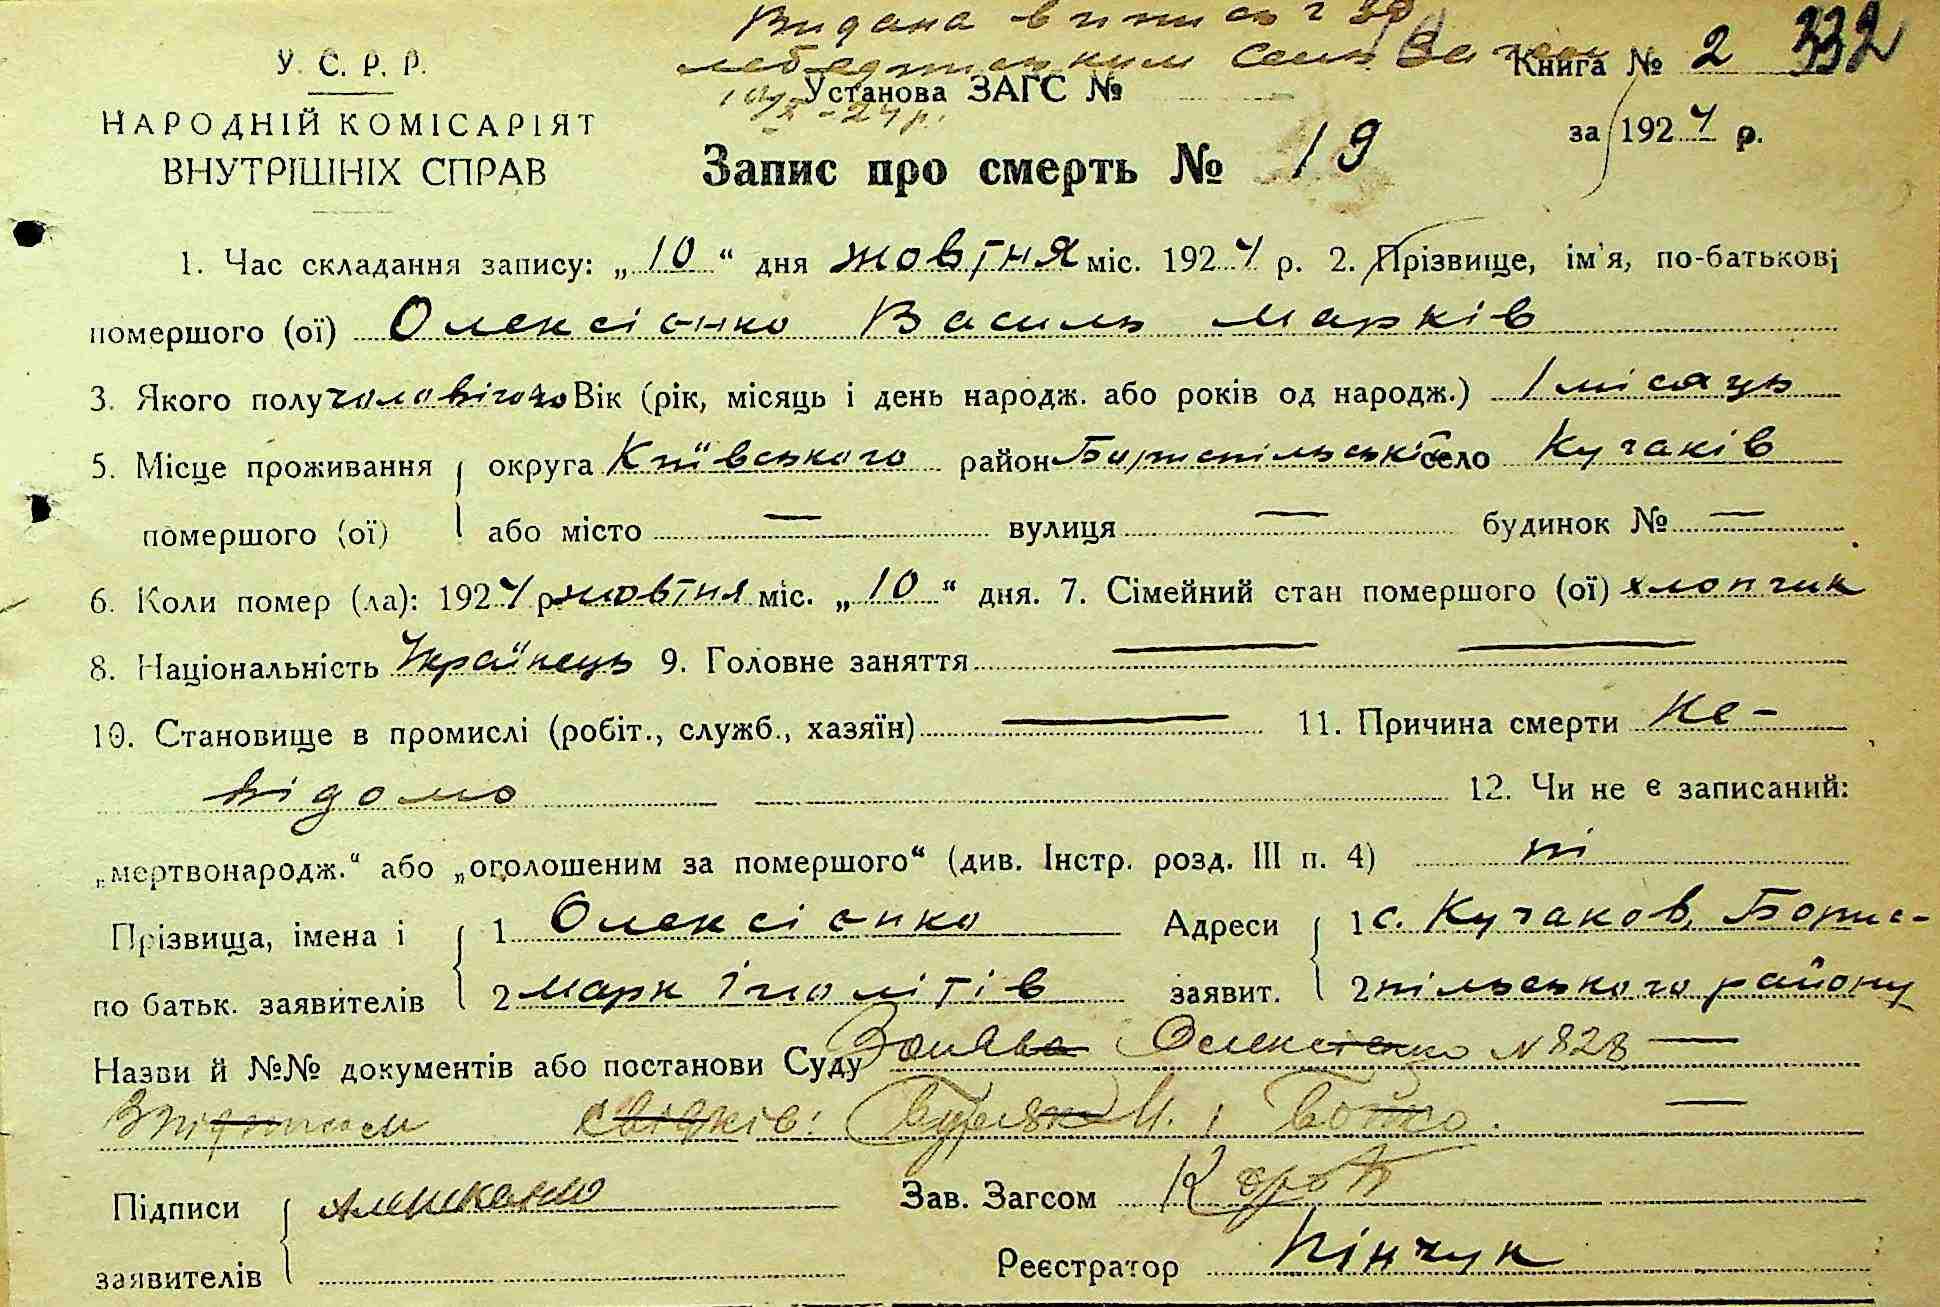 Видана
У. С. Р. Р.
Книга № 2 332
Установа ЗАГС №
НАРОДНІЙ КОМІСАРІЯТ
за 1924 р.
ВНУТРІШНІХ СПРАВ
Запис про смерть № 19
1. Час складання запису: „10“ дня жовтня міс. 1924 р. 2. Прізвище, ім'я, по-батькові
помершого (ої) Олексієнко Василь Марків
3. Якого полу чоловічого Вік (рік, місяць і день народж. або років од народж.) 1 місяць
5. Місце проживання округа Київського район Бориспільський село Кучаків
помершого (ої) або місто — вулиця — будинок № —
6. Коли помер (ла): 1924 р. жовтня міс. „10“ дня. 7. Сімейний стан помершого (ої) хлопчик
8. Національність Українець 9. Головне заняття — —
10. Становище в промислі (робіт., служб., хазяїн) — 11. Причина смерти не-
відомо 12. Чи не є записаний:
„мертвонародж.“ або „оголошеним за помершого“ (див. Інстр. розд. III п. 4) ні
Прізвища, імена і 1 Олексієнко Адреси 1 с. Кучаков, Борис-
по батьк. заявителів 2 Марк Іполітів заявит. 2 пільського району
Назви й №№ документів або постанови Суду Заява Олексієнко № 828 —
свідків: і Бойко. —
Підписи Зав. Загсом
заявителів Реєстратор Пінчук